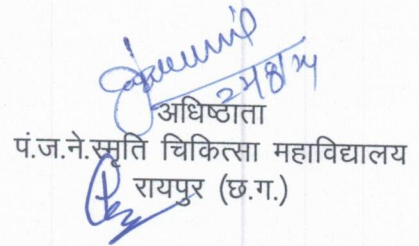 अधिष्ठाता
पं.ज.ने.स्मृति चिकित्सा महाविद्यालय
रायपुर (छ.ग.)